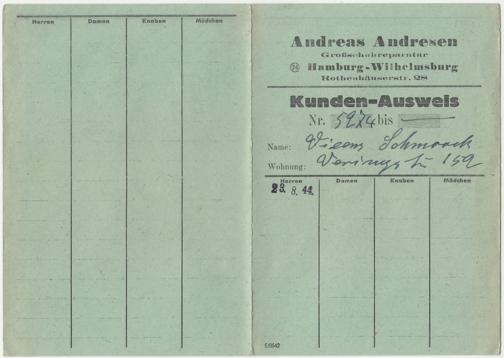 Herren Damen Knaben Mädchen
Andreas Andresen
Großschuhreparatur
24 Hamburg-Wilhelmsburg
Rothenhäuserstr. 28
Kunden-Ausweis
Nr. 5974 bis —
Name: Schmaack
Wohnung: Veringstr 159
Herren Damen Knaben Mädchen
23. 8. 44